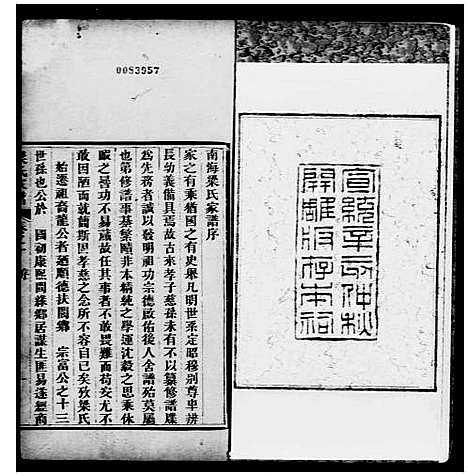 0083957
宣統辛亥仲秋
開雕版存本祠
南海梁氏家譜序
家之有乘猶國之有史舉凡明世系定昭穆別尊卑辨
長幼義備具焉故古來孝子慈孫未有不以纂修譜牒
為先務者誠以發明祖功宗德啟佑後人舍譜殆莫屬
也第修譜事綦繁賾非本精純之學運沈毅之思秉休
之善功不易蕆故任其事者不敢畏難而苟安尤不
敢因陋而就簡斯固孝慈之念所不容自已矣攷梁氏
始遷祖裔龍公者廼順德扶閭鄉 宗富公之十三
世孫也公於 國初康熙間緣鄉居謀生匪易遂經商